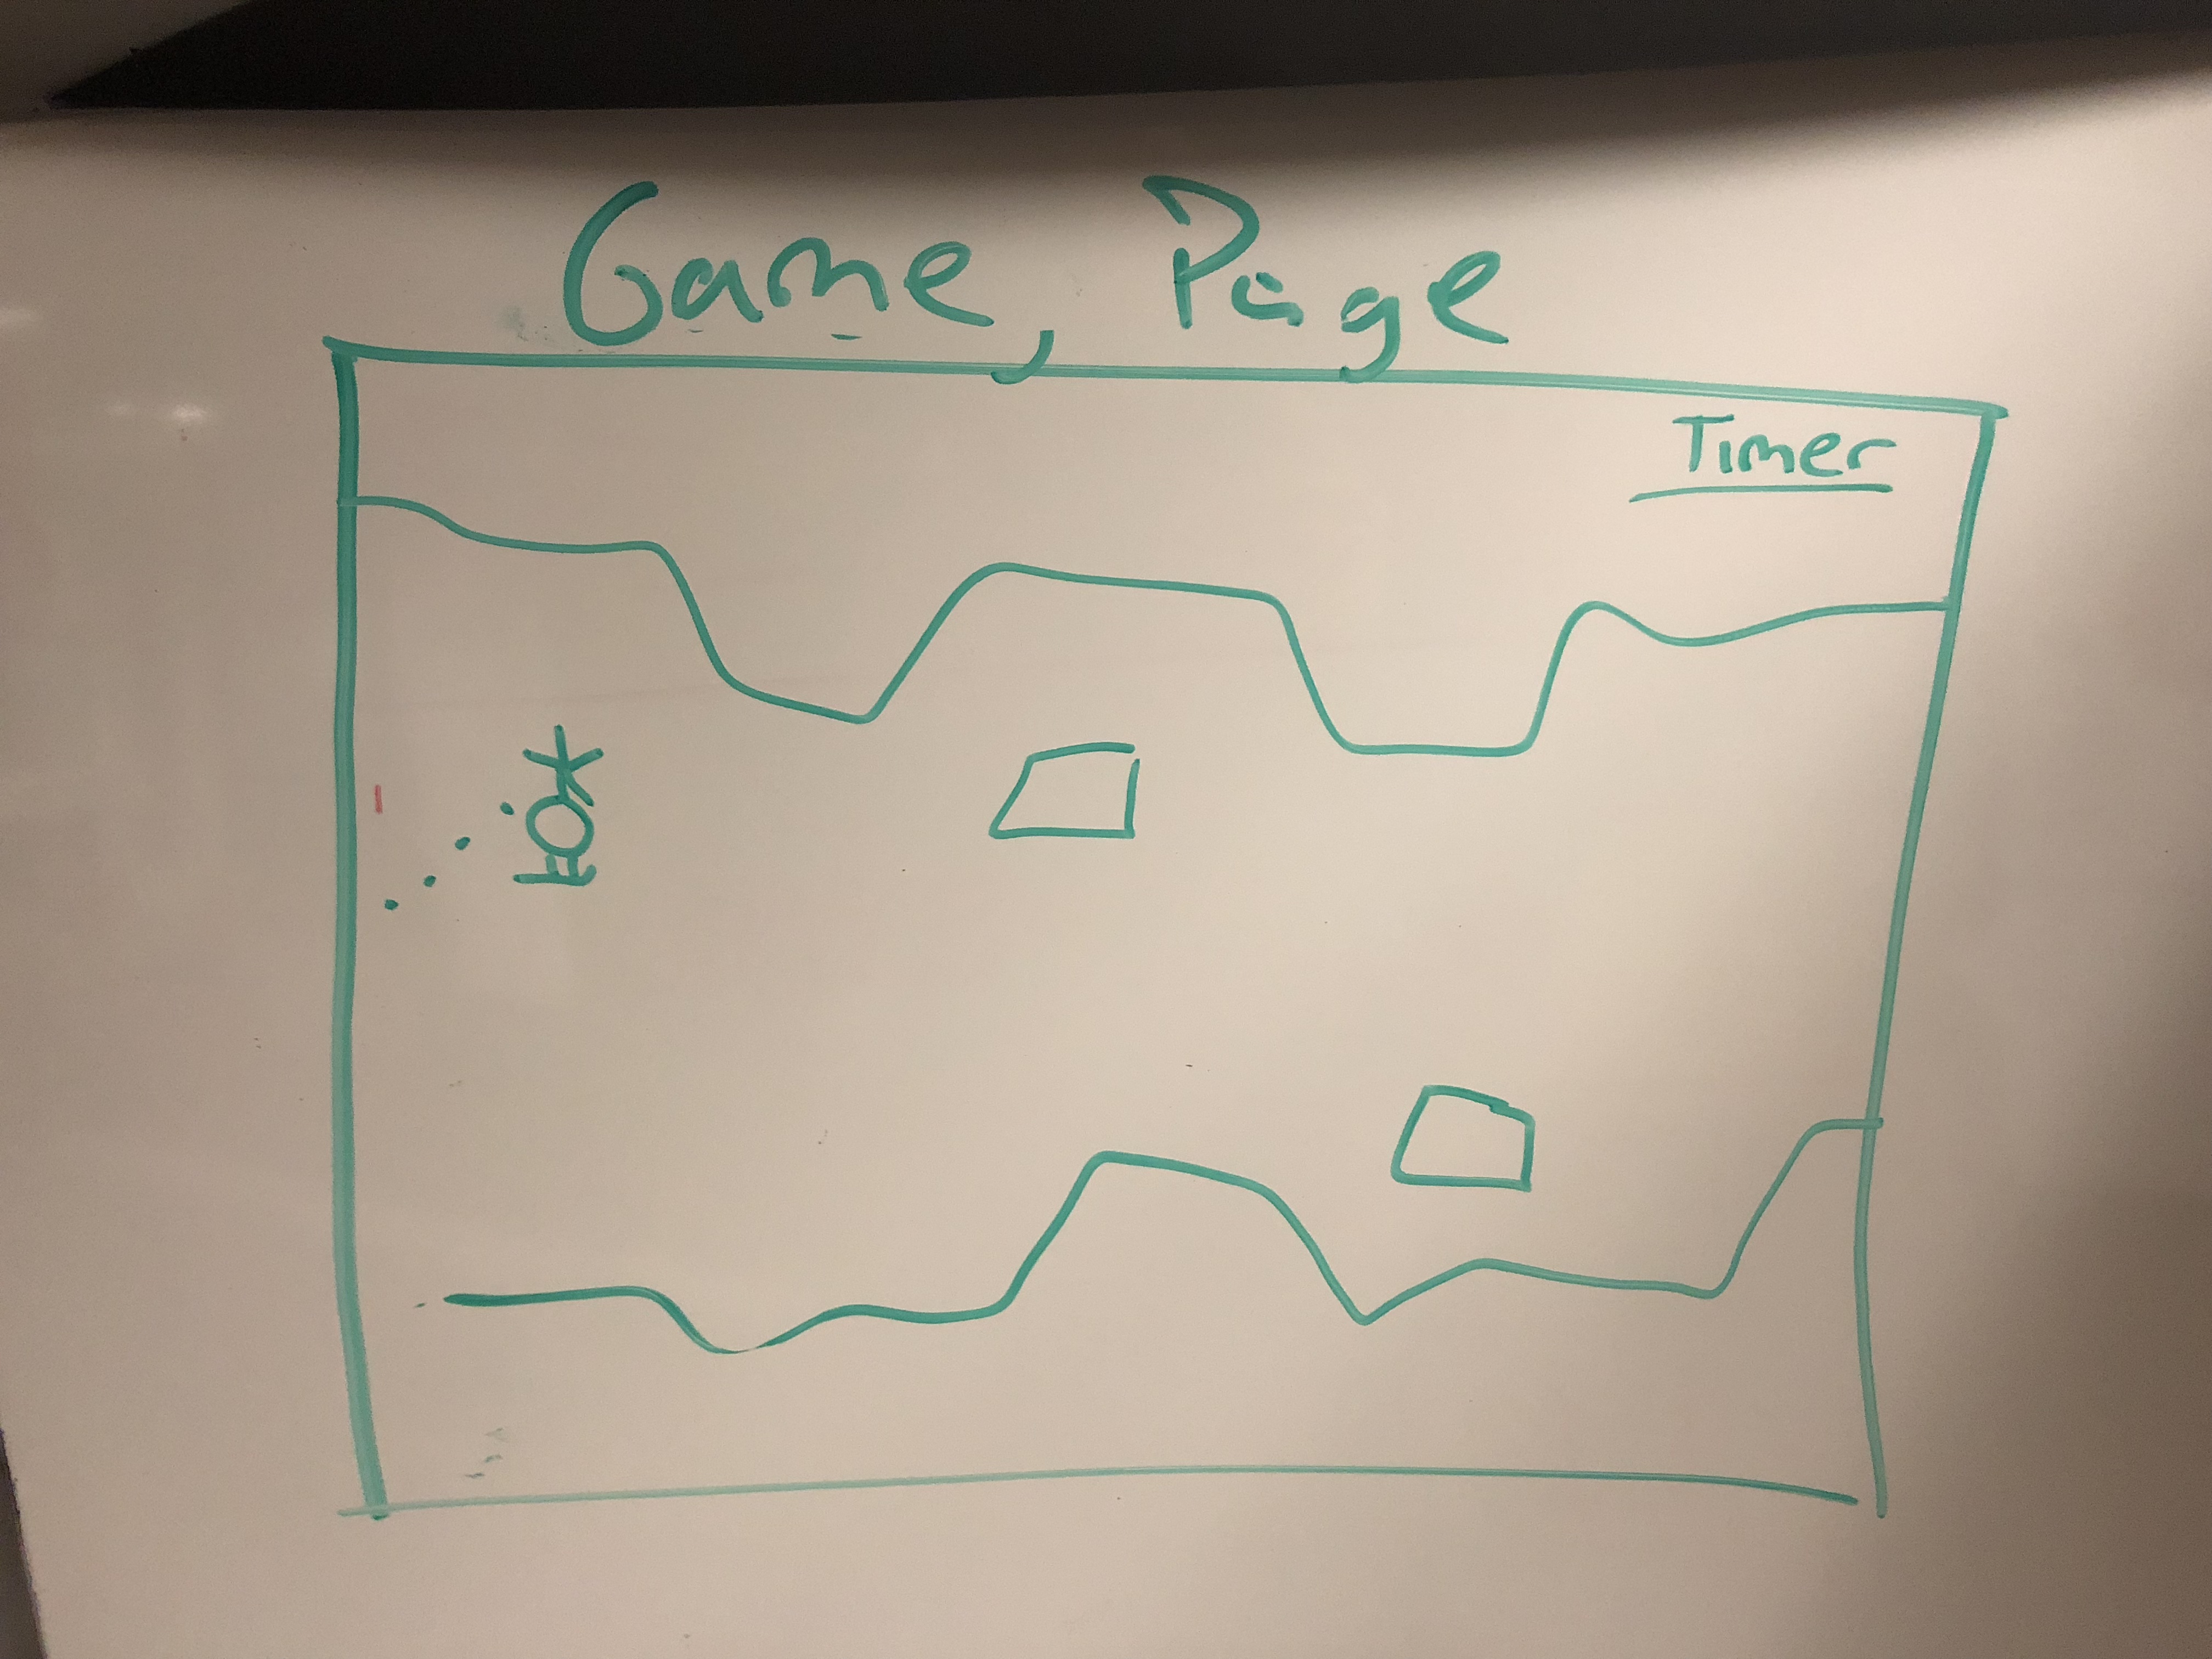 Game, Page
Timer